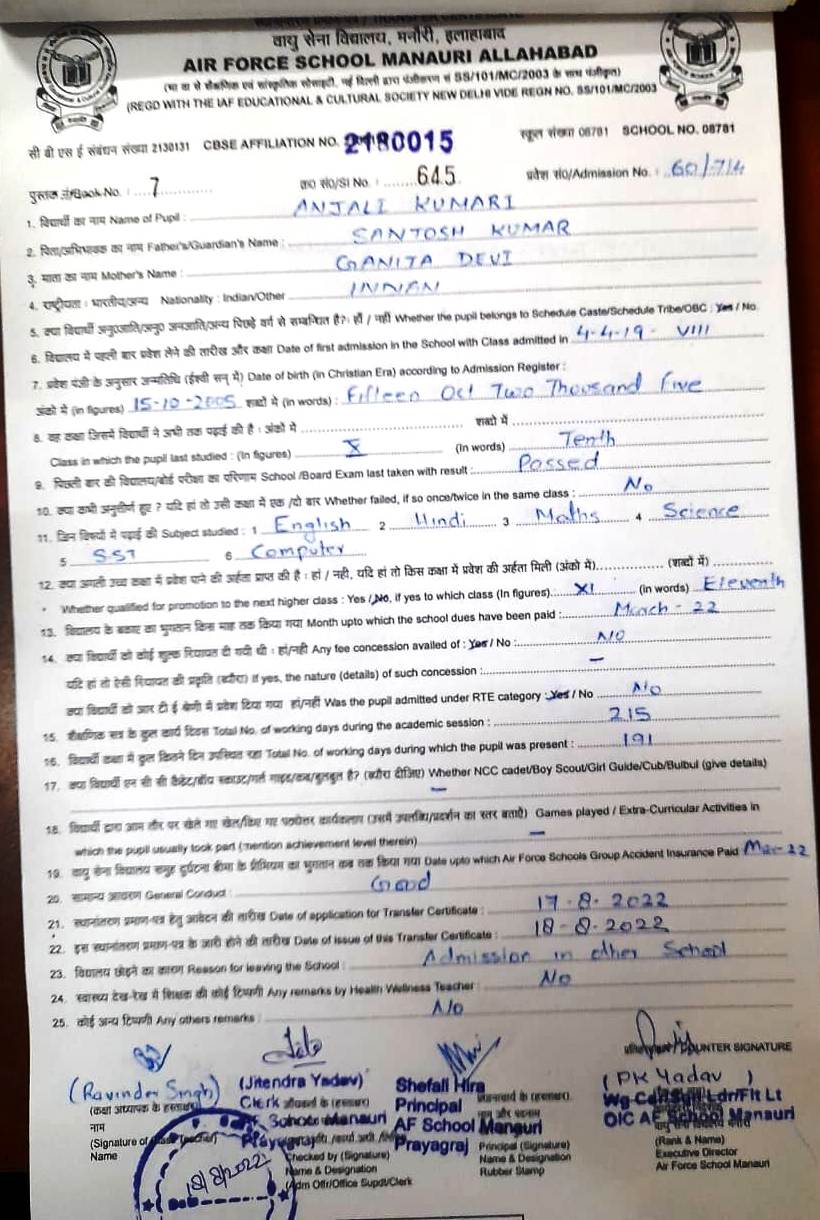 वायु सेना विद्यालय, मनौरी, इलाहाबाद
AIR FORCE SCHOOL MANAURI ALLAHABAD
(REGD WITH THE IAF EDUCATIONAL & CULTURAL SOCIETY NEW DELHI VIDE REGN NO. SS/101/MC/2003
सी बी एस ई संबंधन संख्या 2130131 CBSE AFFILIATION NO. 2180015 स्कूल संख्या 08781 SCHOOL NO. 08781
पुस्तक सं/Book No. : 7 क्र0 सं0/Sl No. : 645 प्रवेश सं0/Admission No. : 60/714
1. विद्यार्थी का नाम Name of Pupil : ANJALI KUMARI
2. पिता/अभिभावक का नाम Father's/Guardian's Name : SANTOSH KUMAR
3. माता का नाम Mother's Name : GANITA DEVI
4. राष्ट्रीयता : भारतीय/अन्य Nationality : Indian/Other INDIAN
5. Whether the pupil belongs to Schedule Caste/Schedule Tribe/OBC : Yes / No
6. विद्यालय में पहली बार प्रवेश लेने की तारीख और कक्षा Date of first admission in the School with Class admitted in 4-4-19 - VIII
7. प्रवेश पंजी के अनुसार जन्मतिथि (ईस्वी सन् में) Date of birth (in Christian Era) according to Admission Register :
अंकों में (in figures) 15-10-2005 शब्दों में (in words) : Fifteen Oct Two Thousand Five
8. वह कक्षा जिसमें विद्यार्थी ने अभी तक पढ़ाई की है : अंकों में शब्दों में
Class in which the pupil last studied : (In figures) X (In words) Tenth
9. पिछली बार की विद्यालय/बोर्ड परीक्षा का परिणाम School /Board Exam last taken with result : Passed
10. क्या कभी अनुत्तीर्ण हुए ? यदि हां तो उसी कक्षा में एक /दो बार Whether failed, if so once/twice in the same class : No
11. जिन विषयों में पढ़ाई की Subject studied : 1 English 2 Hindi 3 Maths 4 Science
5 SST 6 Computer
12. क्या अगली उच्च कक्षा में प्रवेश पाने की अर्हता प्राप्त की है : हां / नही, यदि हां तो किस कक्षा में प्रवेश की अर्हता मिली (अंकों में) (शब्दों में)
Whether qualified for promotion to the next higher class : Yes / No, if yes to which class (In figures) XI (in words) Eleventh
13. विद्यालय के बकाए का भुगतान किस माह तक किया गया Month upto which the school dues have been paid : March - 22
14. क्या विद्यार्थी को कोई शुल्क रियायत दी गयी थी : हां/नही Any fee concession availed of : Yes / No : NO
यदि हां तो ऐसी रियायत की प्रकृति (ब्यौरा) If yes, the nature (details) of such concession : –
क्या विद्यार्थी को आर टी ई श्रेणी में प्रवेश दिया गया हां/नही Was the pupil admitted under RTE category : Yes / No No
15. शैक्षणिक सत्र के कुल कार्य दिवस Total No. of working days during the academic session : 215
16. विद्यार्थी कक्षा में कुल कितने दिन उपस्थित रहा Total No. of working days during which the pupil was present : 191
17. क्या विद्यार्थी एन सी सी कैडेट/बॉय स्काउट/गर्ल गाइड/कब/बुलबुल है? (ब्यौरा दीजिए) Whether NCC cadet/Boy Scout/Girl Guide/Cub/Bulbul (give details)
–
18. Games played / Extra-Curricular Activities in
which the pupil usually took part (mention achievement level therein) –
19. वायु सेना विद्यालय समूह दुर्घटना बीमा के प्रीमियम का भुगतान कब तक किया गया Date upto which Air Force Schools Group Accident Insurance Paid Mar-22
20. सामान्य आचरण General Conduct : Good
21. स्थानांतरण प्रमाण-पत्र हेतु आवेदन की तारीख Date of application for Transfer Certificate : 17-8-2022
22. इस स्थानांतरण प्रमाण-पत्र के जारी होने की तारीख Date of issue of this Transfer Certificate : 18-8-2022
23. विद्यालय छोड़ने का कारण Reason for leaving the School : Admission in other School
24. स्वास्थ्य देख-रेख में शिक्षक की कोई टिप्पणी Any remarks by Health Wellness Teacher : No
25. कोई अन्य टिप्पणी Any others remarks : No
COUNTER SIGNATURE
(Ravinder Singh) (Jitendra Yadav) Shefali Hira (PK Yadav )
(कक्षा अध्यापक के हस्ताक्षर) Clerk Principal Wg Cdr/Sqn Ldr/Flt Lt
नाम School Manauri AF School Manauri OIC AF School Manauri
(Signature of Class Teacher) Prayagraj Prayagraj Principal (Signature) (Rank & Name)
Name Checked by (Signature) Name & Designation Executive Director
Name & Designation Rubber Stamp Air Force School Manauri
(Adm Offr/Office Supdt/Clerk
18/8/2022